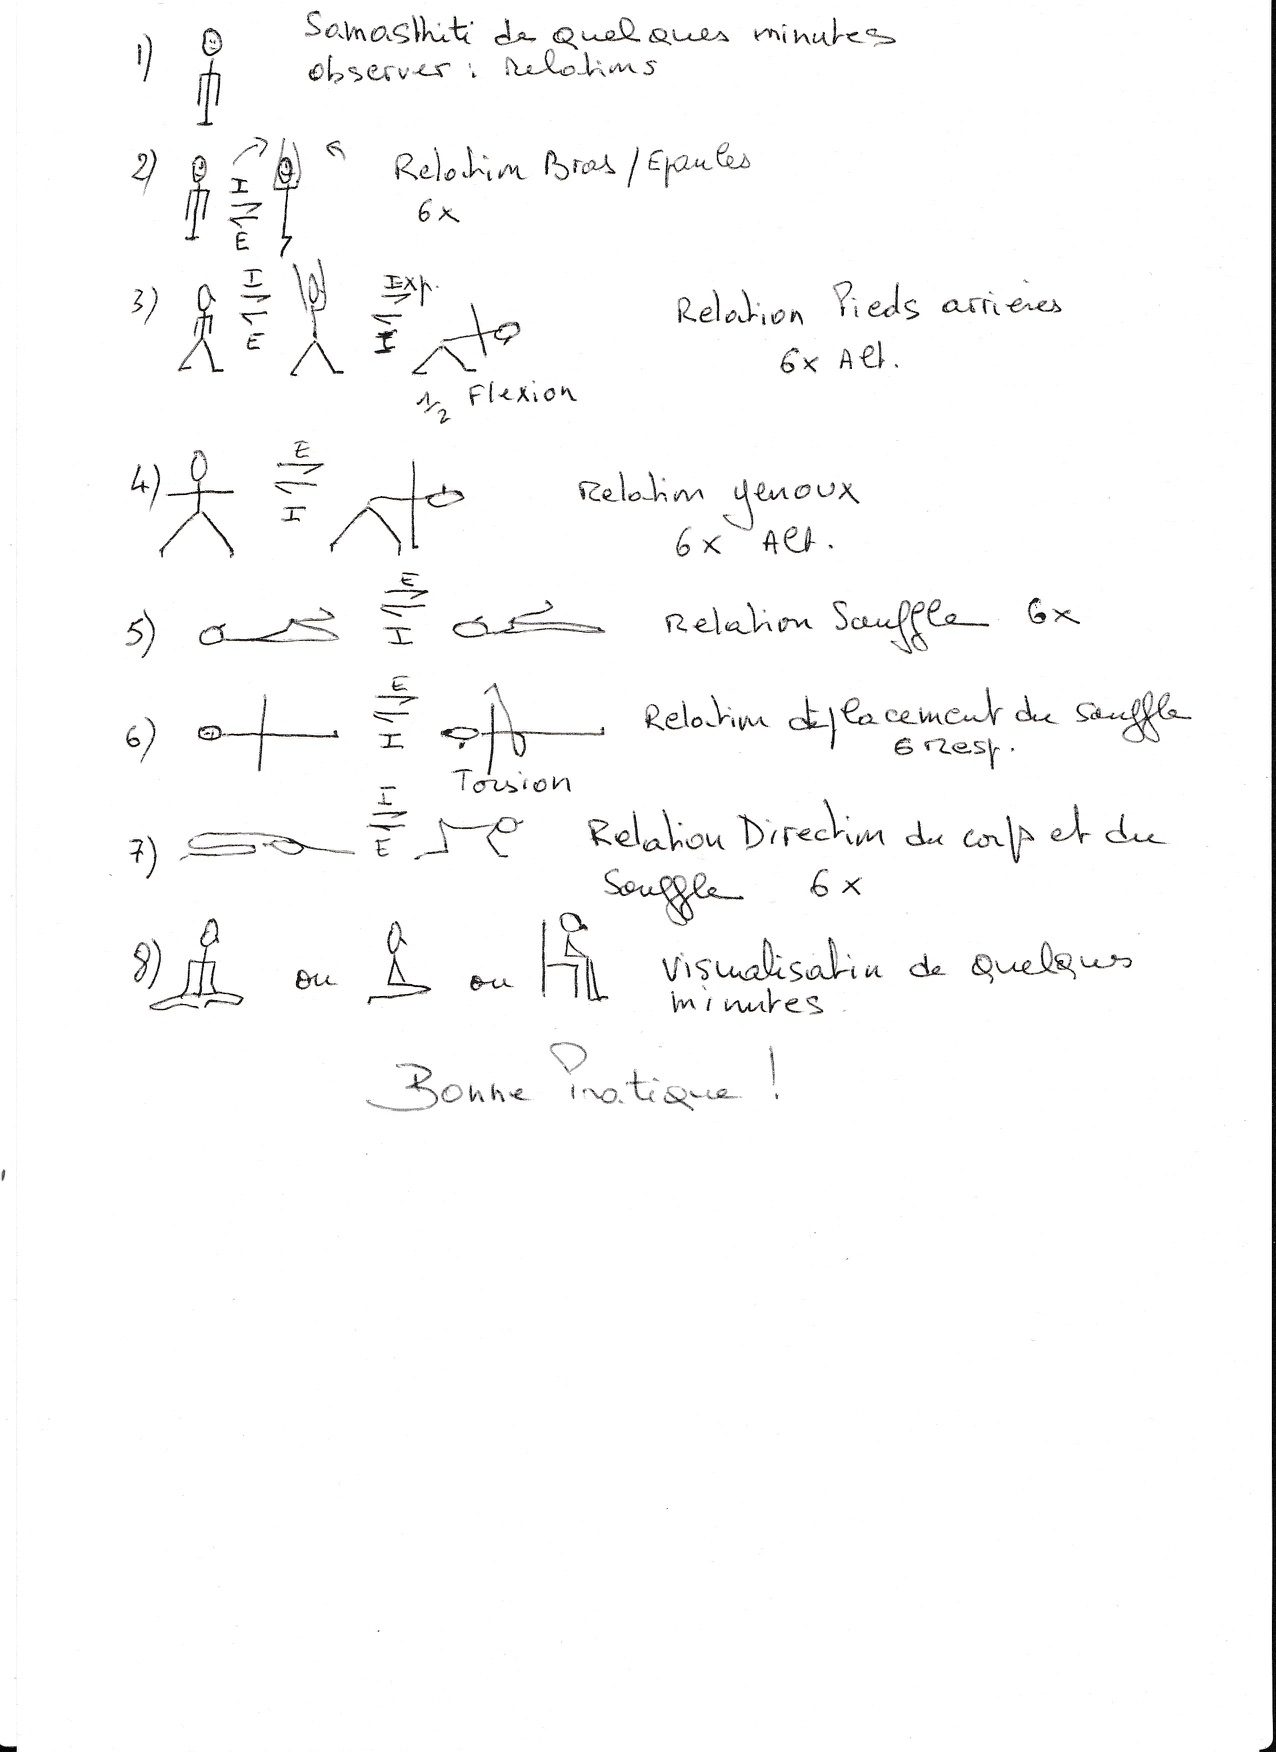 1) Samasthiti de quelques minutes
observer : Relations
2) I E Relation Bras / Epaules
6x
3) I E Exp. I Relation Pieds arrières
6x Alt.
1/2 Flexion
4) E I Relation genoux
6x Alt.
5) E I Relation Souffle 6x
6) E I Relation déplacement du souffle
6 Resp.
Torsion
7) I E Relation Direction du corps et du
Souffle 6x
8) ou ou Visualisation de quelques
minutes
Bonne Pratique !